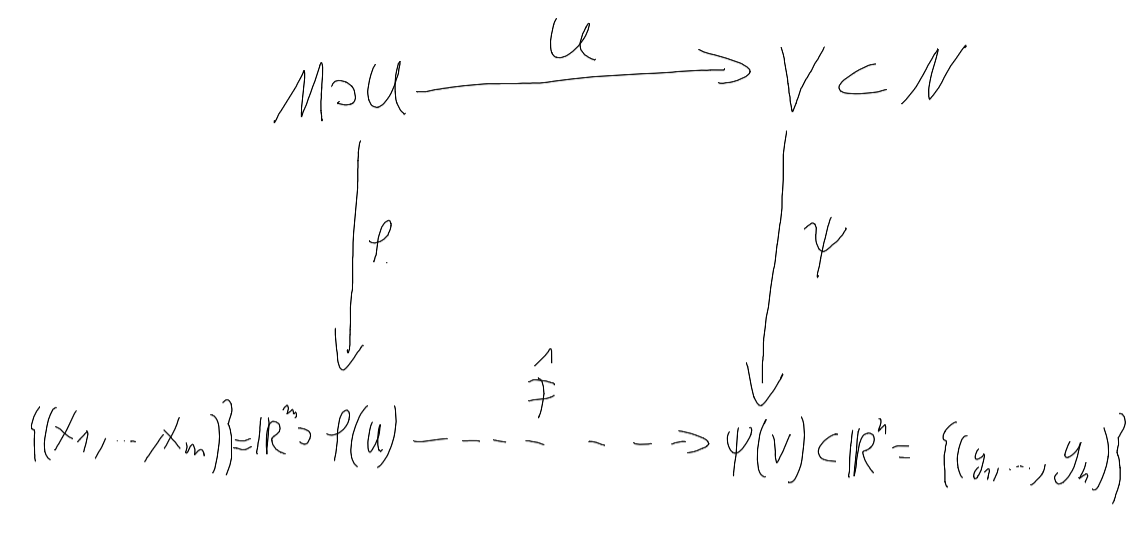 U
M ⊃ U ⟶ V ⊂ N
φ ψ
F̂
{(x₁, ..., xₘ)} = ℝᵐ ⊃ φ(U) ----⟶ ψ(V) ⊂ ℝⁿ = {(y₁, ..., yₙ)}